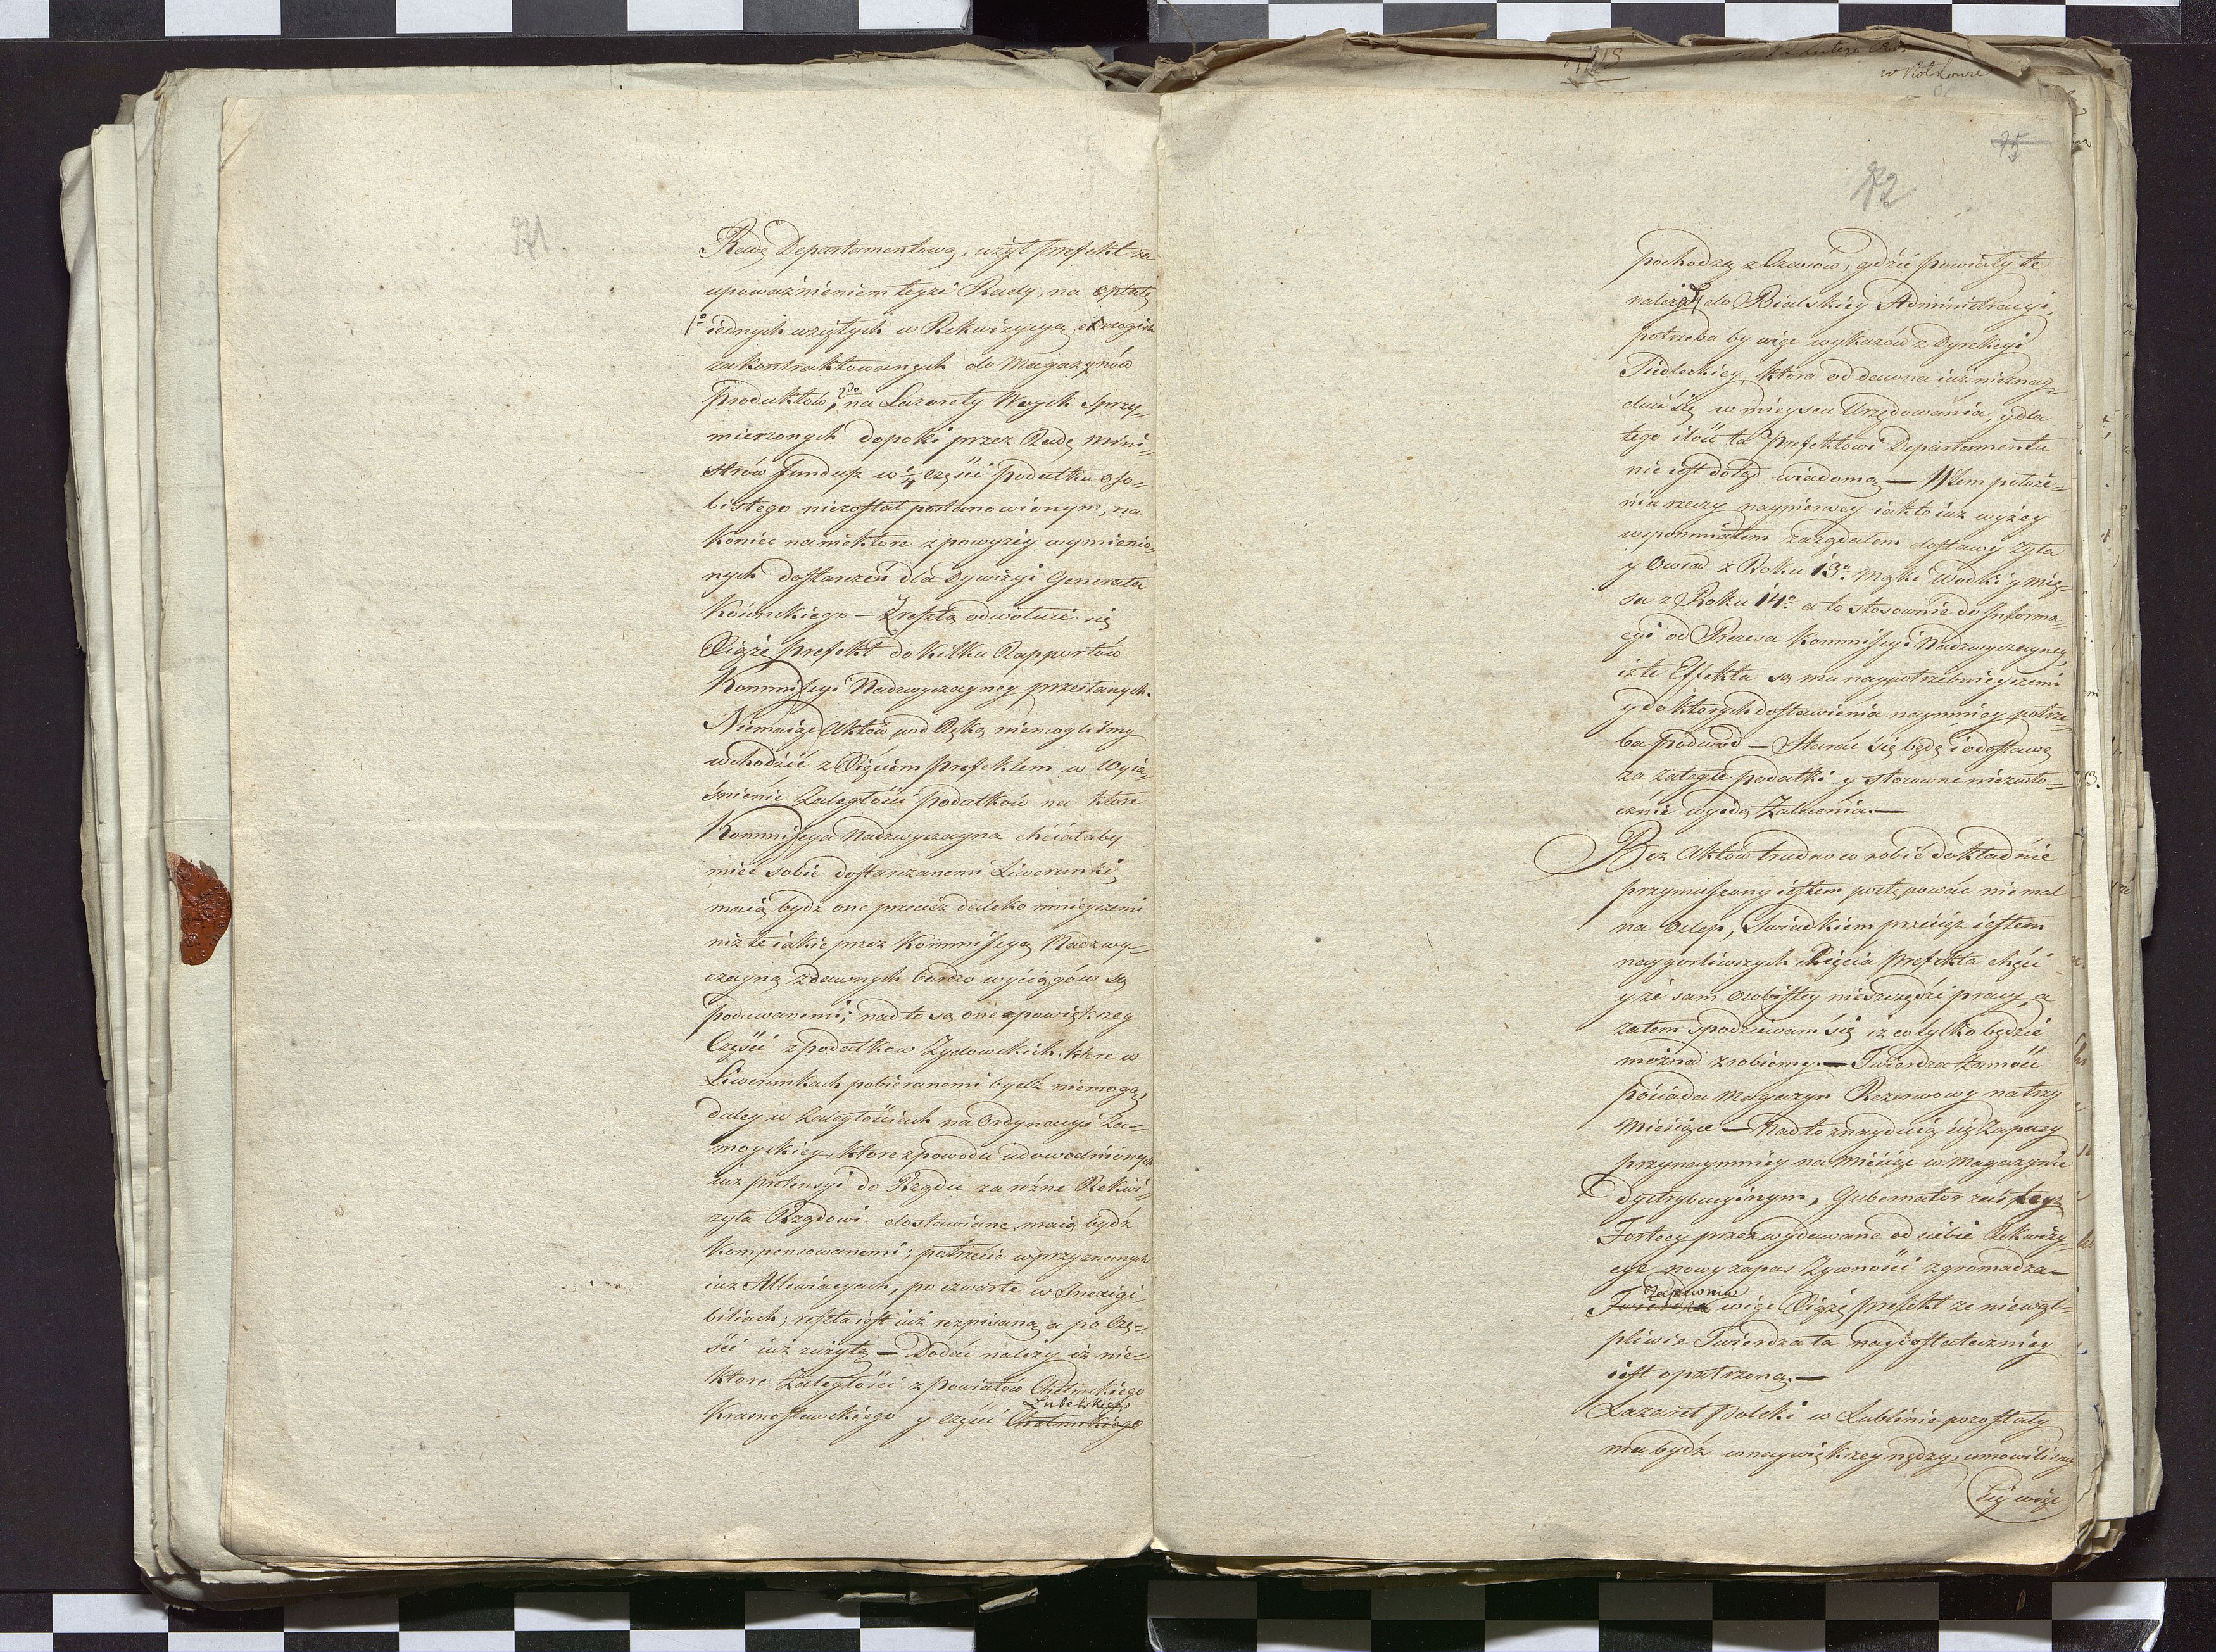 71.
Radę Departamentową, użył Prefekt za
upoważnieniem teyże Rady, na opłatę
1o iednych wziętych w Rekwizycyą, drugich
zakontraktowanych do Magazynów
Produktów, 2do na Lazarety Woysk sprzy-
mierzonych dopoki przez Radę Mini-
strów fundusz w 1/4 części Podatku oso-
bistego niezostał postanowionym, na
koniec na niektore z powyżey wymienio-
nych dostarzeń dla Dywizyi Generała
Kosinskiego — Zresztą odwołuie się
Xiąże Prefekt do kilku Rapportów
Kommissyi Nadzwyczayney przesłanych.
Niemaiąc Aktów pod Ręką niemogliśmy
wchodzić z Xięciem Prefektem w wyia-
śnienie Zaległości podatków na ktore
Kommissya Nadzwyczayna chciałaby
mieć sobie dostarzanemi Liwerunki,
maią bydz one przecież daleko mnieyszemi
niż te iakie przez Kommissyą Nadzwy-
czayną z dawnych bardzo wyciągów są
podawanemi; nad to są one z powiększey
Części z podatkow Zydowskich, ktore w
Liwerunkach pobieranemi bydź niemogą,
daley w Zaległościach na Ordynacyi Za-
moyskiey, ktore z powodu udowodnionych
iuż pretensyi do Rządu za różne Rekwi-
zyta Rządowi dostawiane maią bydź
kompensowanemi; potrzecie w przyznanych
iuz Allewiacyach, po czwarte w Inexigi
biliach; reszta iest iuż rozpisaną a po Czę-
ści iuż zużytą — Dodać należy iż nie-
ktore Zaległości z Powiatów Chełmskiego
Lubelskiego
Krasnostawskiego y części Chełmskiego
75
72
pochodzą z Czasów, gdzie Powiaty te
należały do Bialskiey Administracyi,
potrzeba by więc wykazów z Dyrekcyi
Siedleckiey, ktora od dawna iuż nieznay-
duie się w mieyscu Urzędowania, y dla
tego ilość ta Prefektowi Departamentu
nie iest dotąd wiadomą — W tem położe-
niu rzeczy naypierwey iak to iuż wyżey
wspomniałem zażądałem dostawy Zyta
y Owsa z Roku 13o Mąki Wodki y Mię-
sa z Roku 14o a to stosownie do Informa-
cyi od Prezesa Kommissyi Nadzwyczayney,
iż te Effekta są mu naypotrzebnieyszemi
y do ktorych dostawienia naymniey potrze-
ba podwod — Starać się będę i o dostawę
za zaległe podatki y stosowne niezwło-
cznie wyidą Zalecenia. —
Bez Aktów trudno co robić dokładnie
przymuszony iestem postępować niemal
na oślep, Swiadkiem przecież iestem
naygorliwszych Xięcia Prefekta chęci
y że sam osobistey nieszczędzi pracy, a
zatem spodziewam się iż co tylko będzie
można zrobiemy. — Twierdza Zamość
posiada Magazyn Rezerwowy na trzy
Miesiące — Nadto znayduią się Zapasy
przynaymniey na Miesiąc w Magazynie
dystrybucyinym, Gubernator zaś teyż
Fortecy przez wydawane od siebie Rekwizy-
cye nowy zapas Zywności zgromadza —
Zapewnia
Twierdza więc Xiąże Prefekt ze niewąt-
pliwie Twierdza ta naydostateczniey
iest opatrzoną. —
Lazaret Polski w Lublinie pozostały
ma bydź w naywiększey nędzy, umowiliśmy
się więc